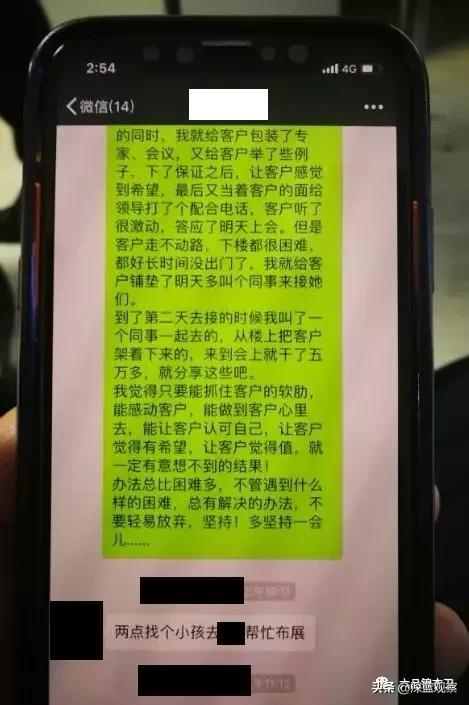 2:54
4G
微信(14)
的同时，我就给客户包装了专
家、会议，又给客户举了些例
子，下了保证之后，让客户感觉
到希望，最后又当着客户的面给
领导打了个配合电话，客户听了
很激动，答应了明天上会。但是
客户走不动路，下楼都很困难，
都好长时间没出门了，我就给客
户铺垫了明天多叫个同事来接她
们。
到了第二天去接的时候我叫了一
个同事一起去的，从楼上把客户
架着下来的，来到会上就干了五
万多，就分享这些吧。
我觉得只要能抓住客户的软肋，
能感动客户，能做到客户心里
去，能让客户认可自己，让客户
觉得有希望，让客户觉得值，就
一定有意想不到的结果！
办法总比困难多，不管遇到什么
样的困难，总有解决的办法，不
要轻易放弃，坚持！多坚持一会
儿......
上午10:11
两点找个小孩去
帮忙布展
午11:12
头条@深蓝观察